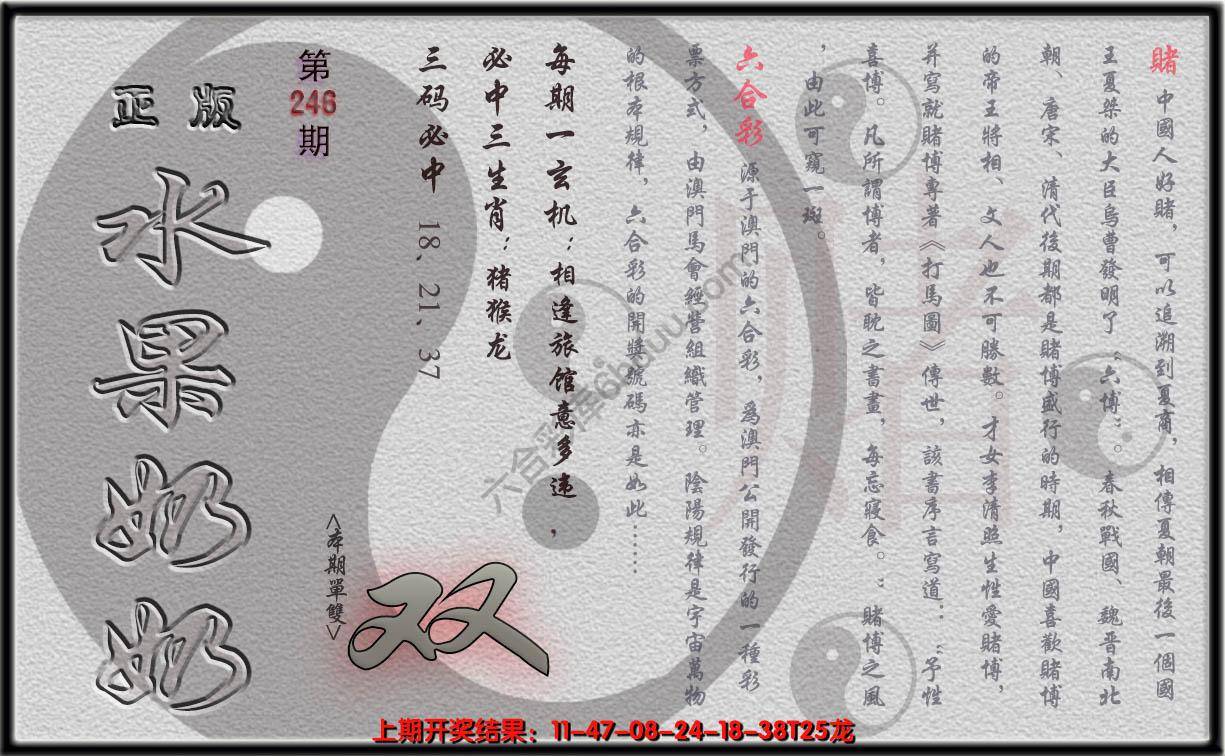 賭 中國人好賭，可以追溯到夏商，相傳夏朝最後一個國
王夏桀的大臣烏曹發明了“六博”。春秋戰國、魏晋南北
朝、唐宋、清代後期都是賭博盛行的時期，中國喜歡賭博
的帝王將相、文人也不可勝數。才女李清照生性愛賭博，
并寫就賭博專著《打馬圖》傳世，該書序言寫道：“予性
喜博。凡所謂博者，皆耽之晝，每忘寢食。”賭博之風
，由此可窺一斑。
六合彩 源于澳門的六合彩，爲澳門公開發行的一種彩
票方式，由澳門馬會經營組織管理。陰陽規律是宇宙萬物
的根本規律，六合彩的開獎號碼亦是如此……
每期一玄机：相逢旅馆意多违，
必中三生肖：猪猴龙
三码必中 18、21、37
第
246
期
<本期單雙>
双
正版
水果奶奶
六合彩库
上期开奖结果：11-47-08-24-18-38T25龙